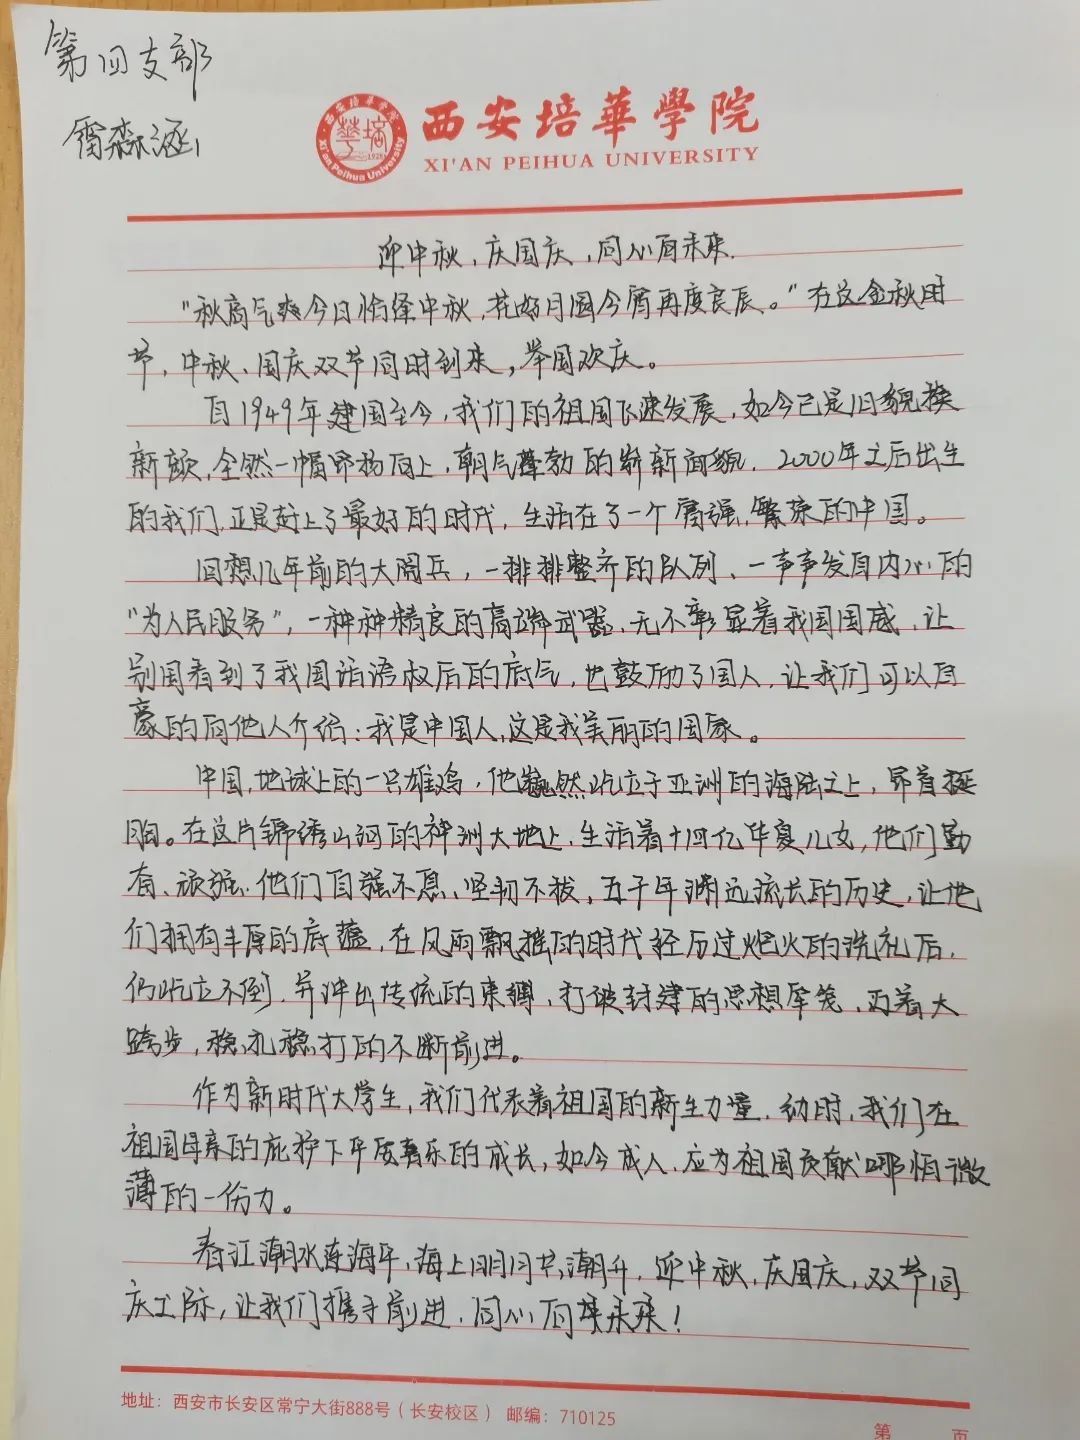 第四支部
雷森涵
西安培華學院
XI'AN PEIHUA UNIVERSITY
西安培華学院
華培
1928
Xi'an Peihua University
迎中秋,庆国庆,同心向未来.
"秋高气爽今日恰逢中秋,花好月圆今宵再度良辰。"在这金秋时
节,中秋、国庆双节同时到来,举国欢庆。
自1949年建国至今,我们的祖国飞速发展,如今已是旧貌换
新颜,全然一幅昂扬向上,朝气蓬勃的崭新面貌,2000年之后出生
的我们,正是赶上了最好的时代,生活在了一个富强,繁荣的中国。
回想几年前的大阅兵,一排排整齐的队列、一声声发自内心的
"为人民服务",一种种精良的高端武器,无不彰显着我国国威,让
别国看到了我国话语权后的底气,也鼓励了国人,让我们可以自
豪的向他人介绍:我是中国人,这是我美丽的国家。
中国,地球上的一只雄鸡,他巍然屹立于亚洲的海陆之上,昂首挺
胸。在这片锦绣山河的神洲大地上,生活着十四亿华夏儿女,他们勤
奋、顽强,他们自强不息、坚韧不拔,五千年渊远流长的历史,让他
们拥有丰厚的底蕴,在风雨飘摇的时代经历过炮火的洗礼后,
仍屹立不倒,并冲出传统的束缚,打破封建的思想牢笼,迈着大
跨步,稳扎稳打的不断前进。
作为新时代大学生,我们代表着祖国的新生力量,幼时,我们在
祖国母亲的庇护下平安喜乐的成长,如今成人,应为祖国贡献哪怕微
薄的一份力。
春江潮水连海平,海上明月共潮升,迎中秋,庆国庆,双节同
庆之际,让我们携手前进,同心向未来!
地址:西安市长安区常宁大街888号(长安校区) 邮编:710125
第 页